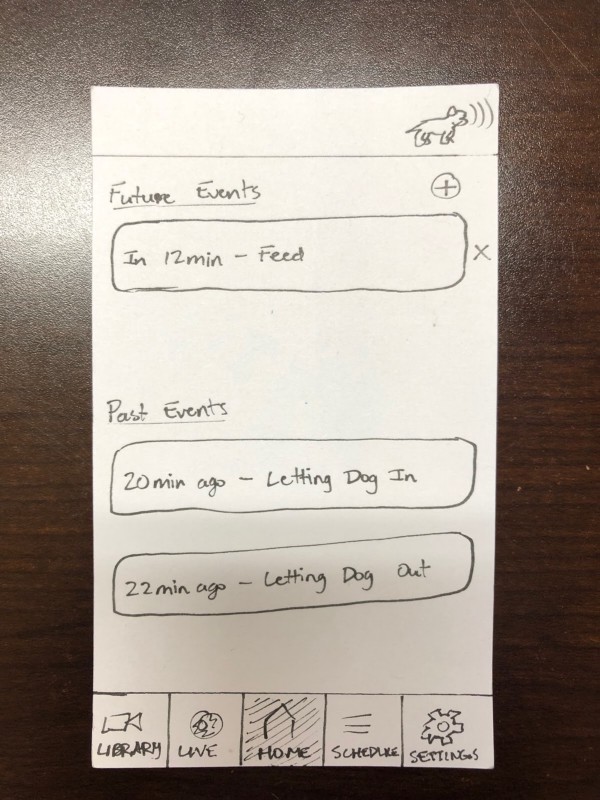 Future Events
In 12min - Feed
X
Past Events
20min ago - Letting Dog In
22min ago - Letting Dog Out
LIBRARY
LIVE
HOME
SCHEDULE
SETTINGS